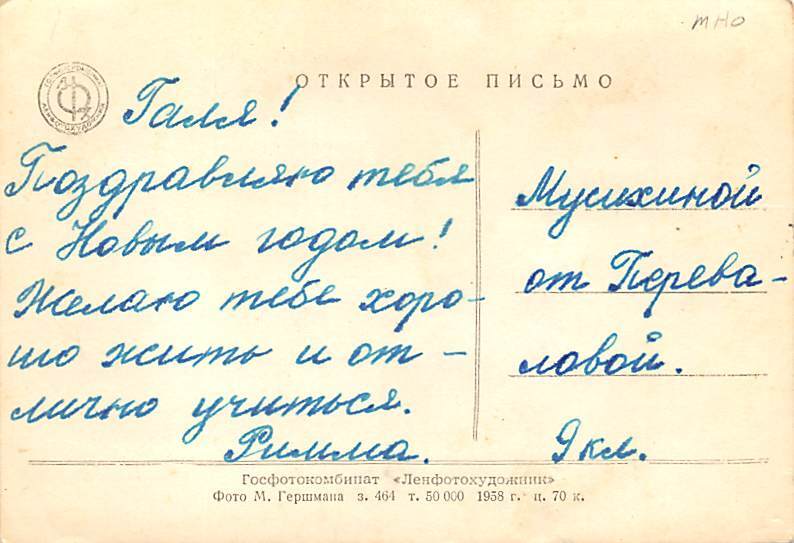 тно
ОТКРЫТОЕ ПИСЬМО
Галя!
Поздравляю тебя
с Новым годом!
Желаю тебе хоро-
шо жить и от-
лично учиться.
Римма.
Мусихиной
от Перева-
ловой.
9 кл.
Госфотокомбинат «Ленфотохудожник»
Фото М. Гершмана з. 464 т. 50 000 1958 г. ц. 70 к.